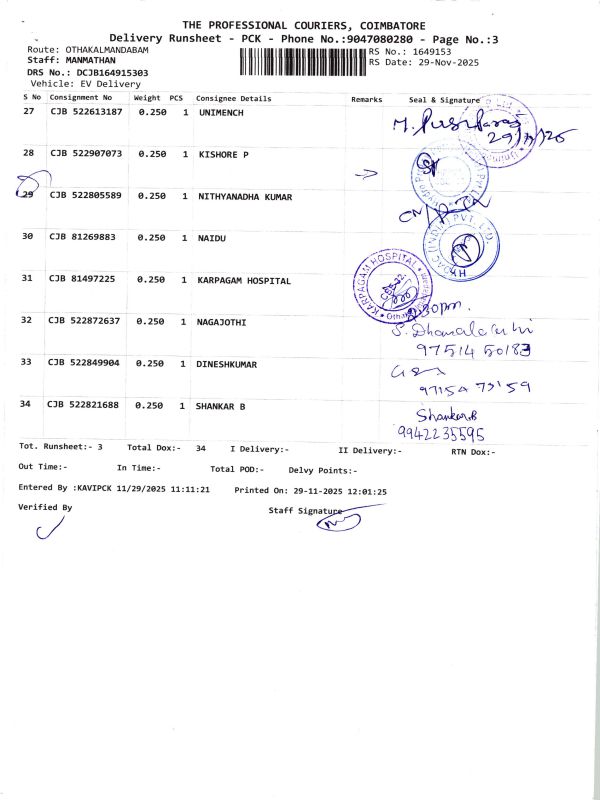 THE PROFESSIONAL COURIERS, COIMBATORE
Delivery Runsheet - PCK - Phone No.:9047080280 - Page No.:3
Route: OTHAKALMANDABAM RS No.: 1649153
Staff: MANMATHAN RS Date: 29-Nov-2025
DRS No.: DCJB164915303
Vehicle: EV Delivery
S No Consignment No Weight PCS Consignee Details Remarks Seal & Signature
27 CJB 522613187 0.250 1 UNIMENCH
29/11/25
28 CJB 522907073 0.250 1 KISHORE P
29 CJB 522805589 0.250 1 NITHYANADHA KUMAR
30 CJB 81269883 0.250 1 NAIDU
31 CJB 81497225 0.250 1 KARPAGAM HOSPITAL
KARPAGAM HOSPITAL
32 CJB 522872637 0.250 1 NAGAJOTHI
97514 50183
33 CJB 522849904 0.250 1 DINESHKUMAR
34 CJB 522821688 0.250 1 SHANKAR B
Shankar.B
9942235595
Tot. Runsheet:- 3 Total Dox:- 34 I Delivery:- II Delivery:- RTN Dox:-
Out Time:- In Time:- Total POD:- Delvy Points:-
Entered By :KAVIPCK 11/29/2025 11:11:21 Printed On: 29-11-2025 12:01:25
Verified By Staff Signature